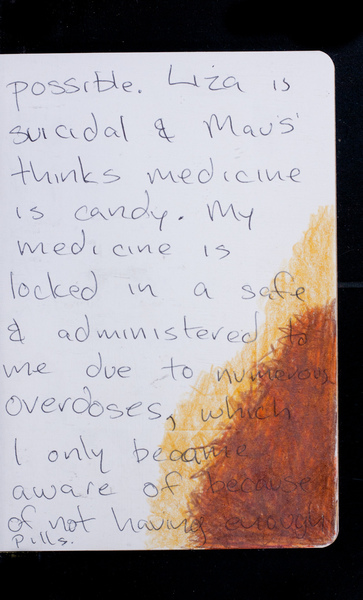 possible. Liza is
suicidal & Maus'
thinks medicine
is candy. My
medicine is
locked in a safe
& administered to
me due to numerous
overdoses, which
I only became
aware of because
of not having enough
pills.